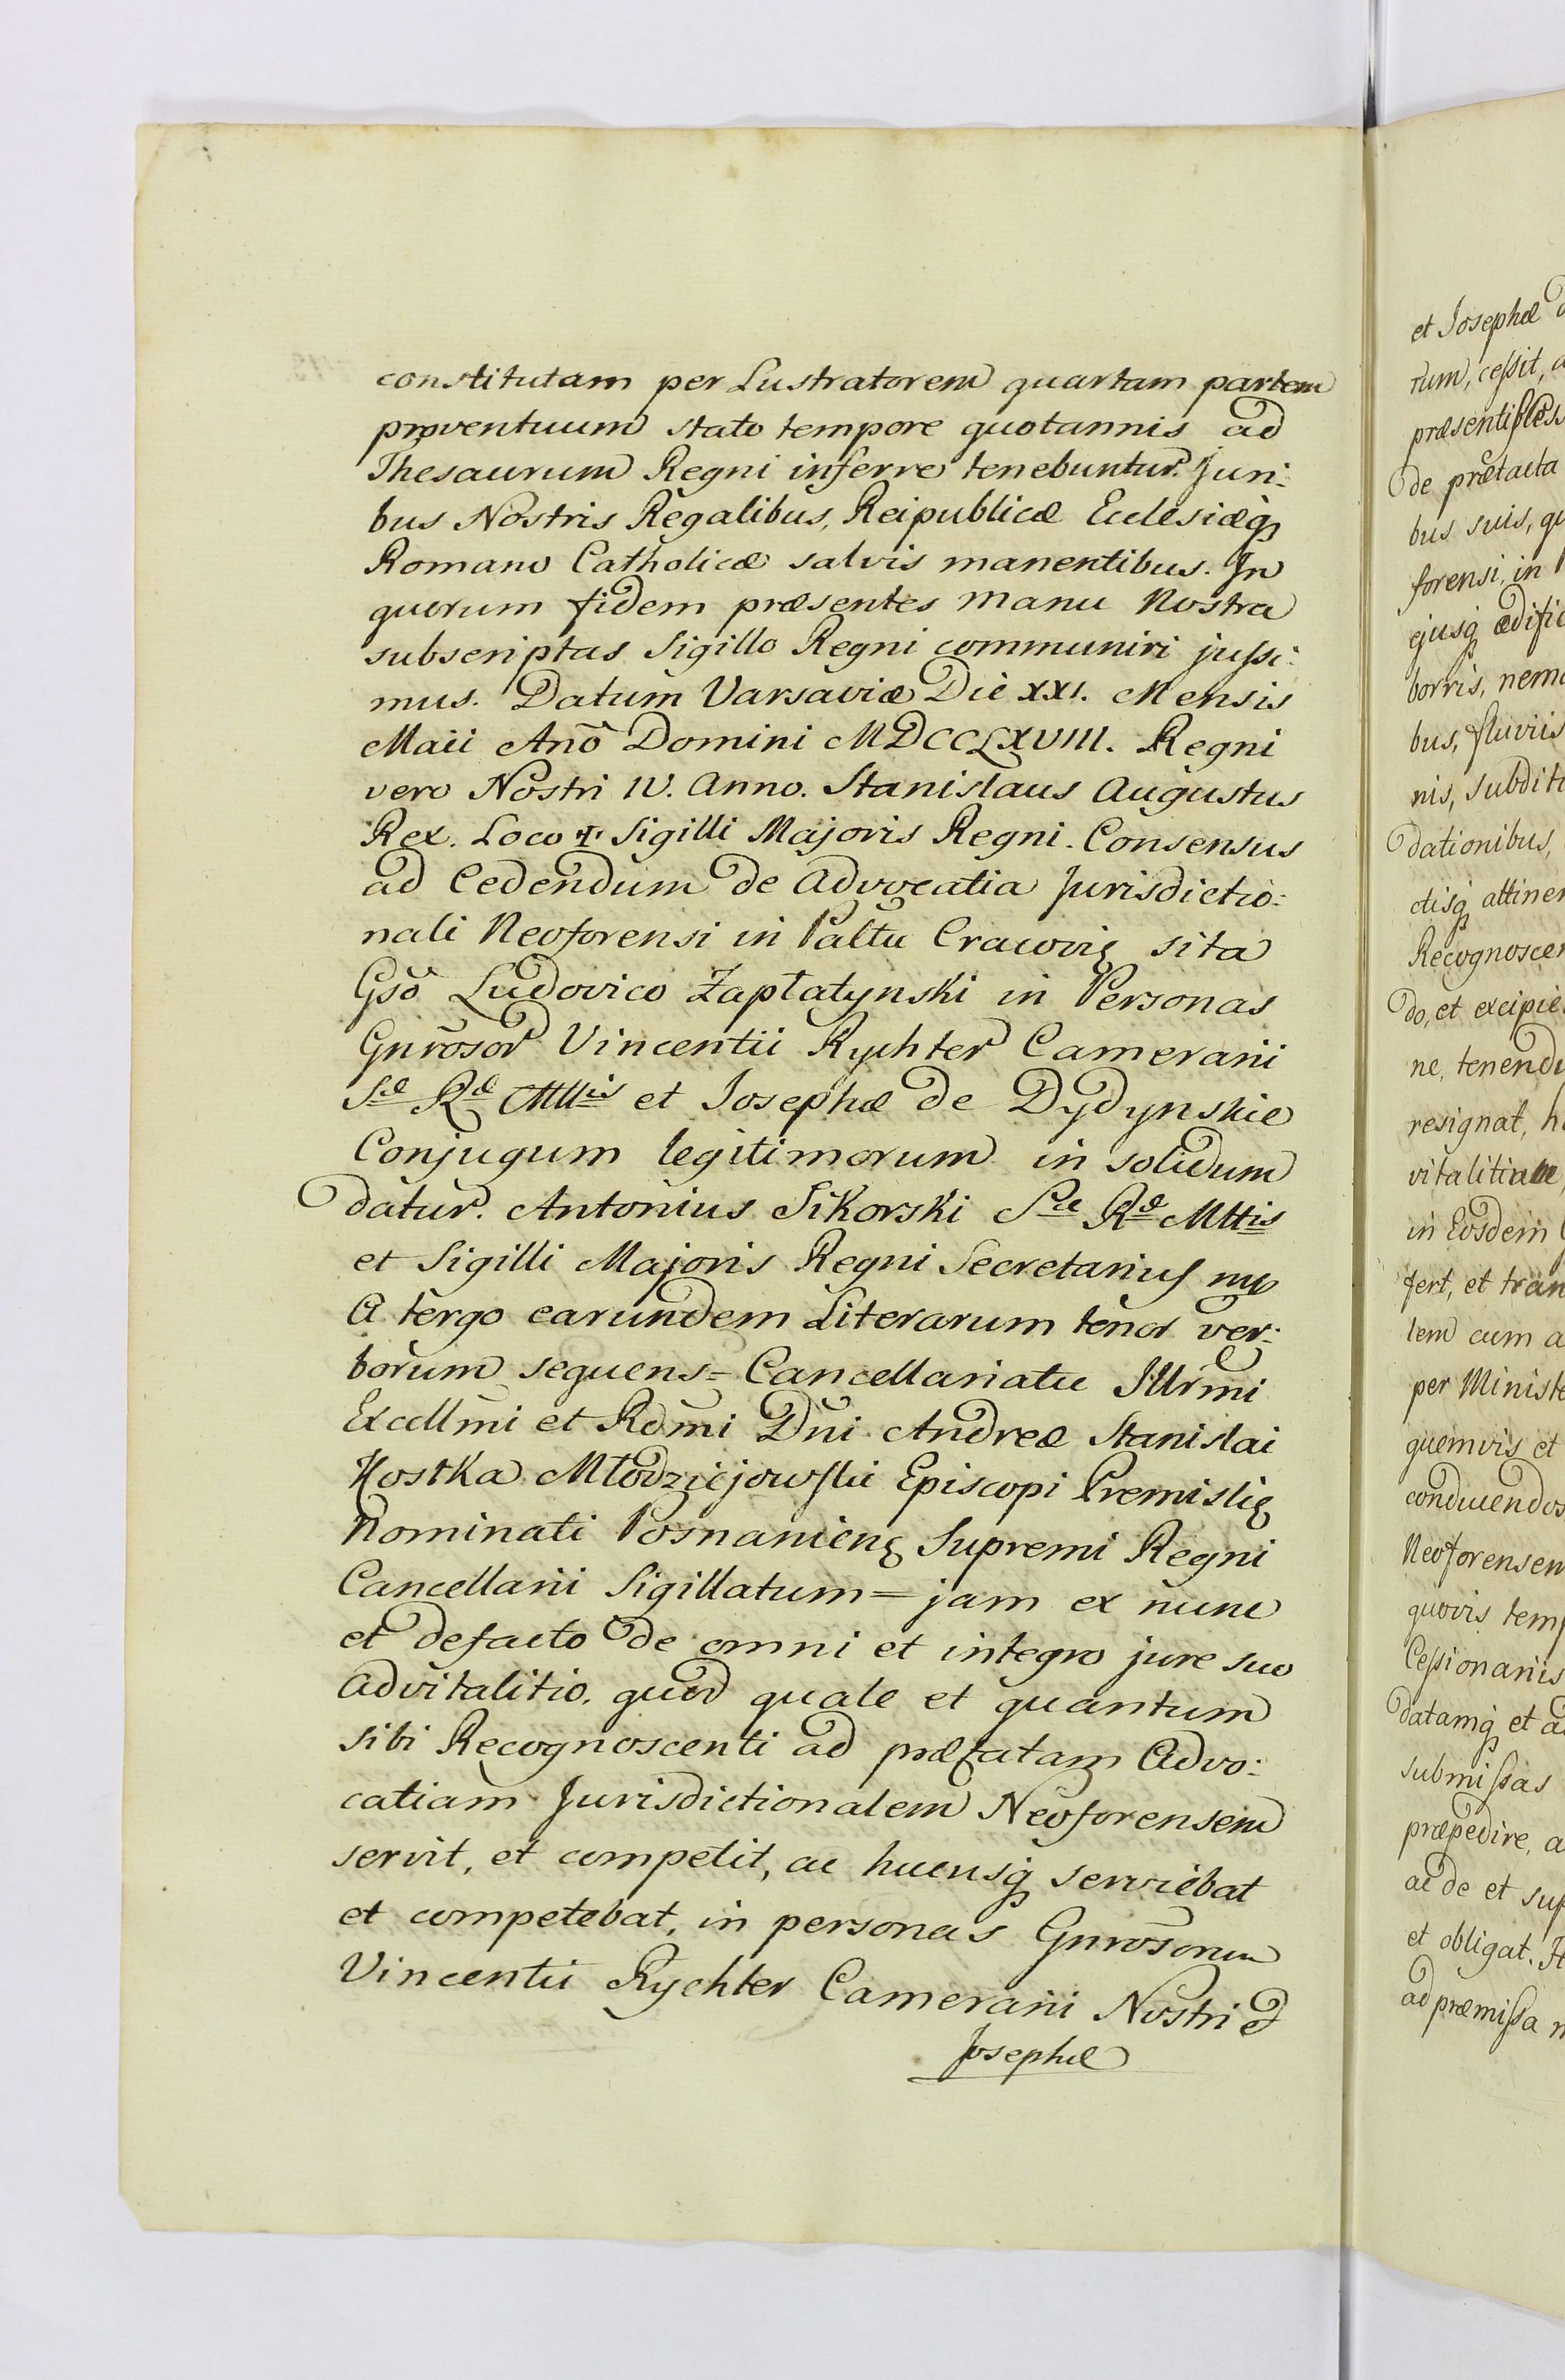 constitutam per Lustratorem quartam partem
proventuum stato tempore quotannis ad
Thesaurum Regni inferre tenebuntur. Juri:
bus Nostris Regalibus, Reipublicæ Ecclesiæq̨
Romano Catholicæ salvis manentibus. In
quorum fidem præsentes manu Nostra
subscriptas Sigillo Regni communiri juſsi:
mus. Datum Varsaviæ Die XXI. Mensis
Maii Anō Domini MDCCLXVIII. Regni
vero Nostri IV. Anno. Stanislaus Augustus
Rex. Loco ✠ Sigilli Majoris Regni. Consensus
ad Cedendum de Advocatia Jurisdictio:
nali Neoforensi in Paltu Cracovię sita
Gsō Ludovico Zapłatynski in Personas
Gnrōsor Vincentii Rychter Camerarii
Sæ Ræ Mttis et Josephæ de Dydynskie
Conjugum legitimorum in solidum
datur. Antonius Sikorski Sæ Ræ Mttis
et Sigilli Majoris Regni Secretariuſ mp
A tergo earundem Literarum tenor ver:
borum sequens = Cancellariatu Illrm̄i
Excellm̄i et Rdm̄i Dn̄i Andreæ Stanislai
Kostka Młodziejowſki Episcopi Premislię
Nominati Posnanienę Supremi Regni
Cancellarii Sigillatum = jam ex nunc
et defacto de omni et integro jure suo
advitalitio, quod quale et quantum
sibi Recognoscenti ad præfatam Advo:
catiam Jurisdictionalem Neoforensem
servit, et competit, ac hucusq̨ serviebat
et competebat, in personas Gnrōsorum
Vincentii Rychter Camerarii Nostri &
Josephæ
et Josephæ
rum, ceſsit,
præsentibſ
de prætacta
bus suis,
forensi, in
ejusq̨ ædific
borris, nem
bus, fluviis
nis, subdit
dationibus,
ctisq̨ attinen
Recognoscen
do, et excipie
ne, tenend
resignat, h
vitalitiæ
in Eosdem
fert, et tran
lem cum a
per Ministe
quemvis et
conducendos
Neoforensem
quovis temp
Ceſsionariis
datamq̨ et a
submiſsas
præpedire, a
ac de et sup
et obligat.
ad præmiſsa